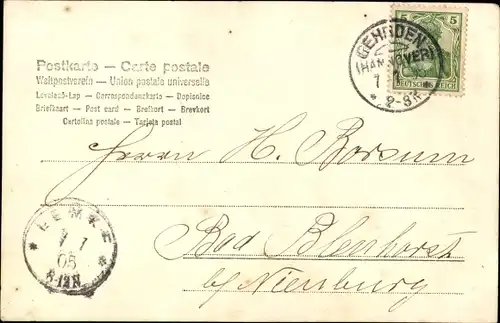 Postkarte — Carte postale
Weltpostverein — Union postale universelle
Levelező-Lap — Correspondenzkarte — Dopisnice
Briefkaart — Post card — Brefkort — Brevkort
Cartolina postale — Tarjeta postal
5
5
DEUTSCHES REICH
GEHRDEN
(HANNOVER)
Herrn H. Borsum
Bad Blenhorst
b/ Nienburg
LEMKE
1
05